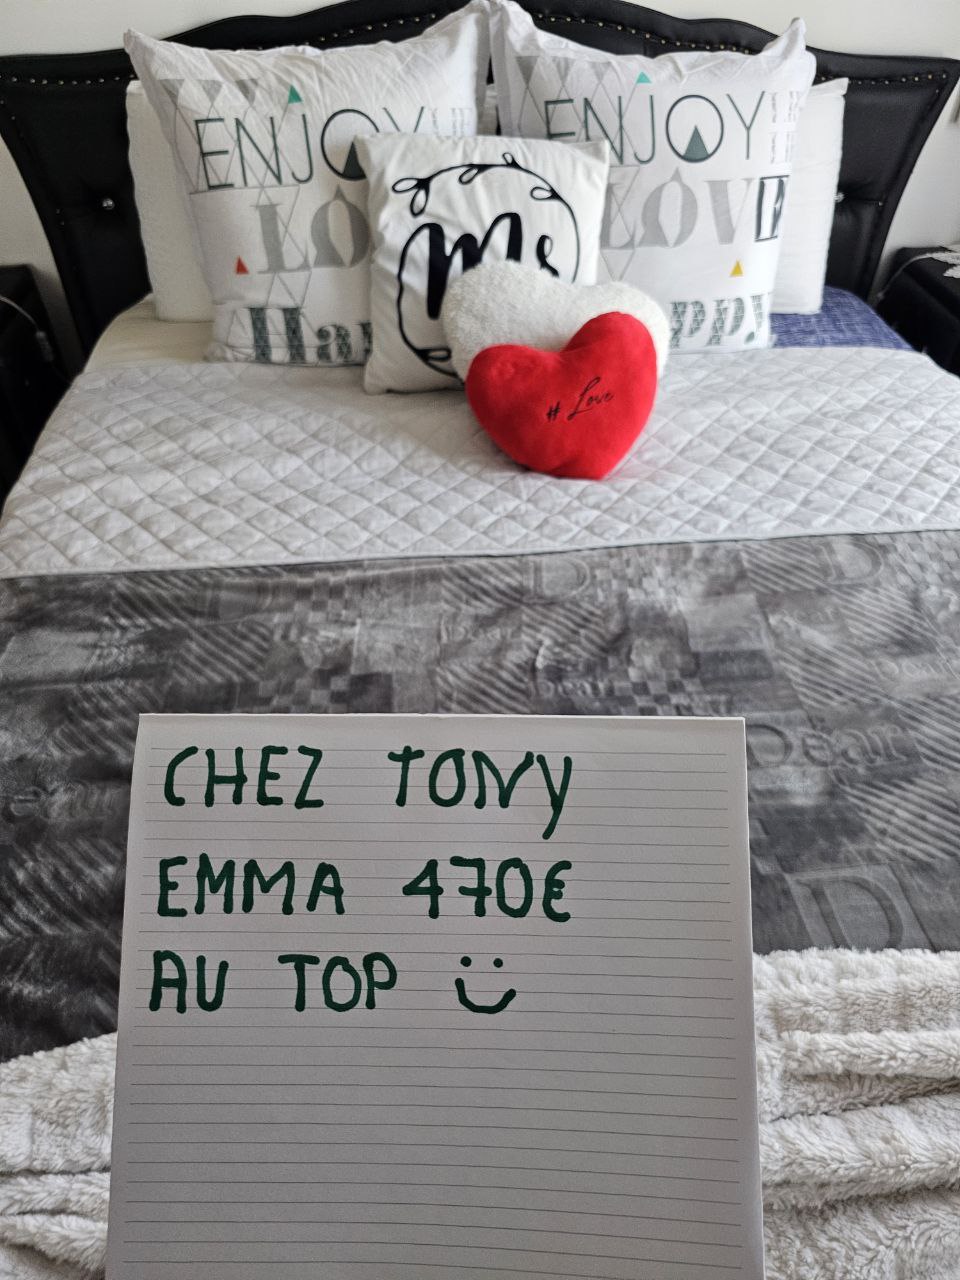 ENJOY
LO
Hap
Mr
ENJOY
LOVE
ppy!
# Love
Dear
Dear
D
CHEZ TONY
EMMA 470€
AU TOP